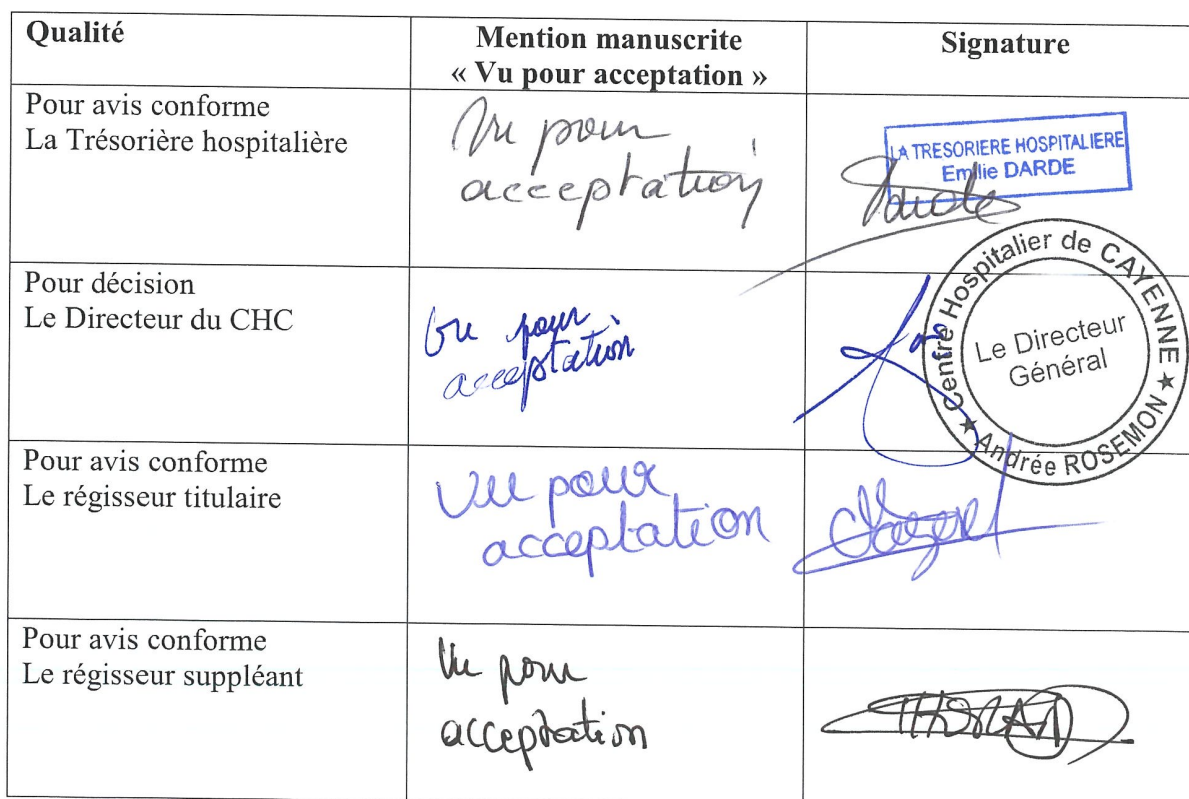 Qualité
Mention manuscrite
« Vu pour acceptation »
Signature
Pour avis conforme
La Trésorière hospitalière
Vu pour
acceptation
LA TRESORIERE HOSPITALIERE
Emilie DARDE
Darde
Pour décision
Le Directeur du CHC
Vu pour
acceptation
Centre Hospitalier de CAYENNE
★ Andrée ROSEMON ★
Le Directeur
Général
Pour avis conforme
Le régisseur titulaire
Vu pour
acceptation
Pour avis conforme
Le régisseur suppléant
Vu pour
acceptation